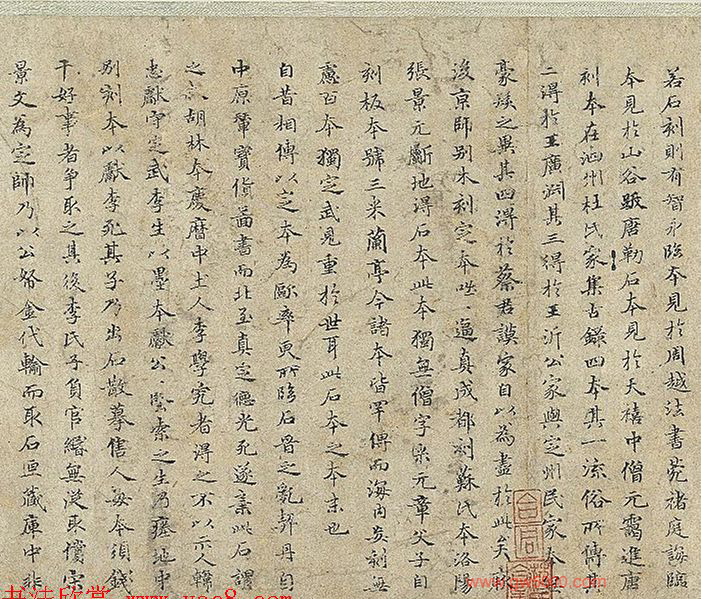 若石刻則有智永臨本見於周越法書苑褚庭誨臨
本見於山谷跋唐勒石本見於天禧中僧元靄進唐
刻本在泗州杜氏家集古錄四本其一流俗所傳其
二得於王廣淵其三得於王沂公家與定州民家本
豪髮之異其四得於蔡君謨家自以為盡於此矣
後京師別木刻定本咄〻逼真成都刻蘇氏本洛陽
張景元斸地得石本此本獨無僧字元章父子自
刻板本號三米蘭亭今諸本皆罕傳而海內刻無
慮百本獨定武見重於世耳此石本之本末也
自昔相傳以定本為歐率更所臨石晉之亂契丹自
中原輦寶貨圖書而北至真定德光死遂棄此石謂
之胡林本慶曆中土人李學究者得之不以示人韓
忠獻守定武李生以墨本獻公〻堅索之生乃瘞地中
別刻本以獻李死其子乃出石散摹售人每本須錢
千好事者爭取之其後李氏子負官緡無從取償宋
景文為定帥乃以公帑金代輸而取石匣藏庫中非
合同
书法欣赏 www.yac8.com